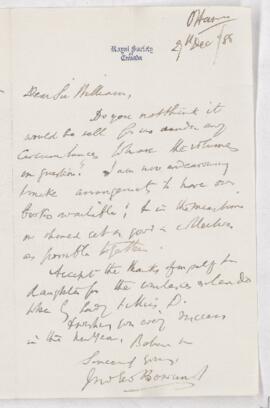 Ottawa
Royal Society
of
Canada
Dec / 88
Dear Sir William,
Do you not think it
would be well for us under any
circumstances to have the volumes
in question? I am now endeavouring
to make arrangements to have our
books available & in the meantime
we should get as good a collection
as possible together.
Accept the thanks of myself &
daughter for the
by Lady
Wishing you every success
in the New Year, Believe me
Sincerely yours,
Jno Geo Bourinot